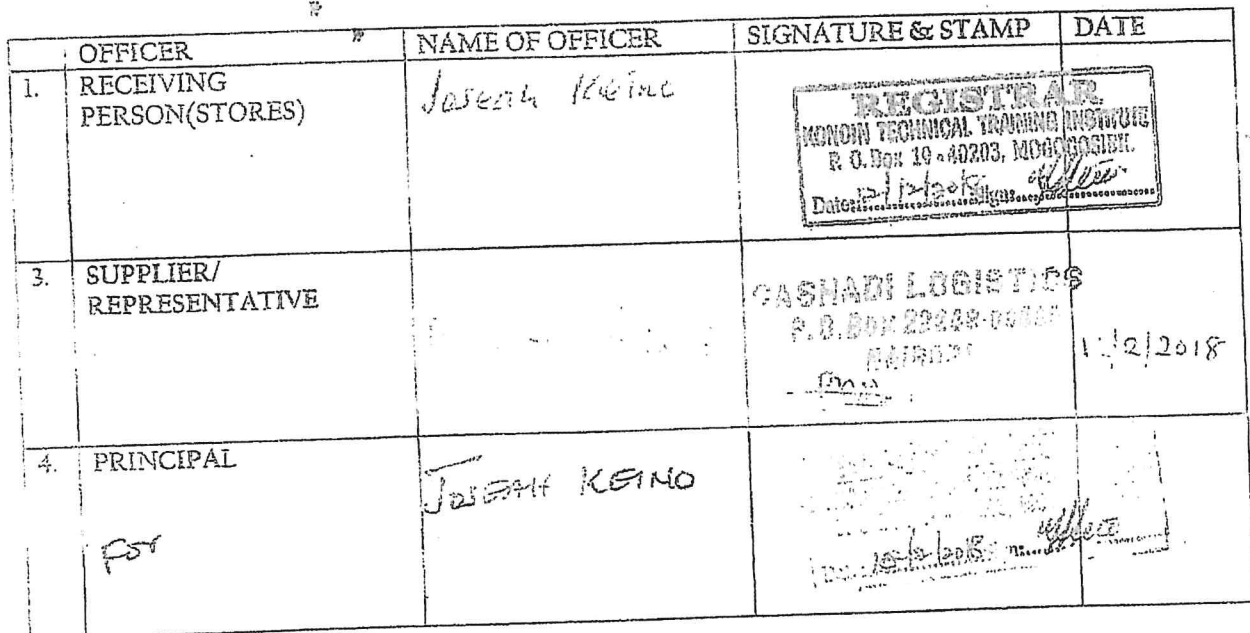 OFFICER NAME OF OFFICER SIGNATURE & STAMP DATE
1. RECEIVING
PERSON(STORES)
Joseph Keino
REGISTRAR
KONOIN TECHNICAL TRAINING INSTITUTE
P. O. Box 10 - 40203, MOGOGOSIEK.
Date: 12/12/2018 Sign:
3. SUPPLIER/
REPRESENTATIVE
CASHADI LOGISTICS
P.O. BOX
NAIROBI
4. PRINCIPAL
For
JOSEPH KEINO